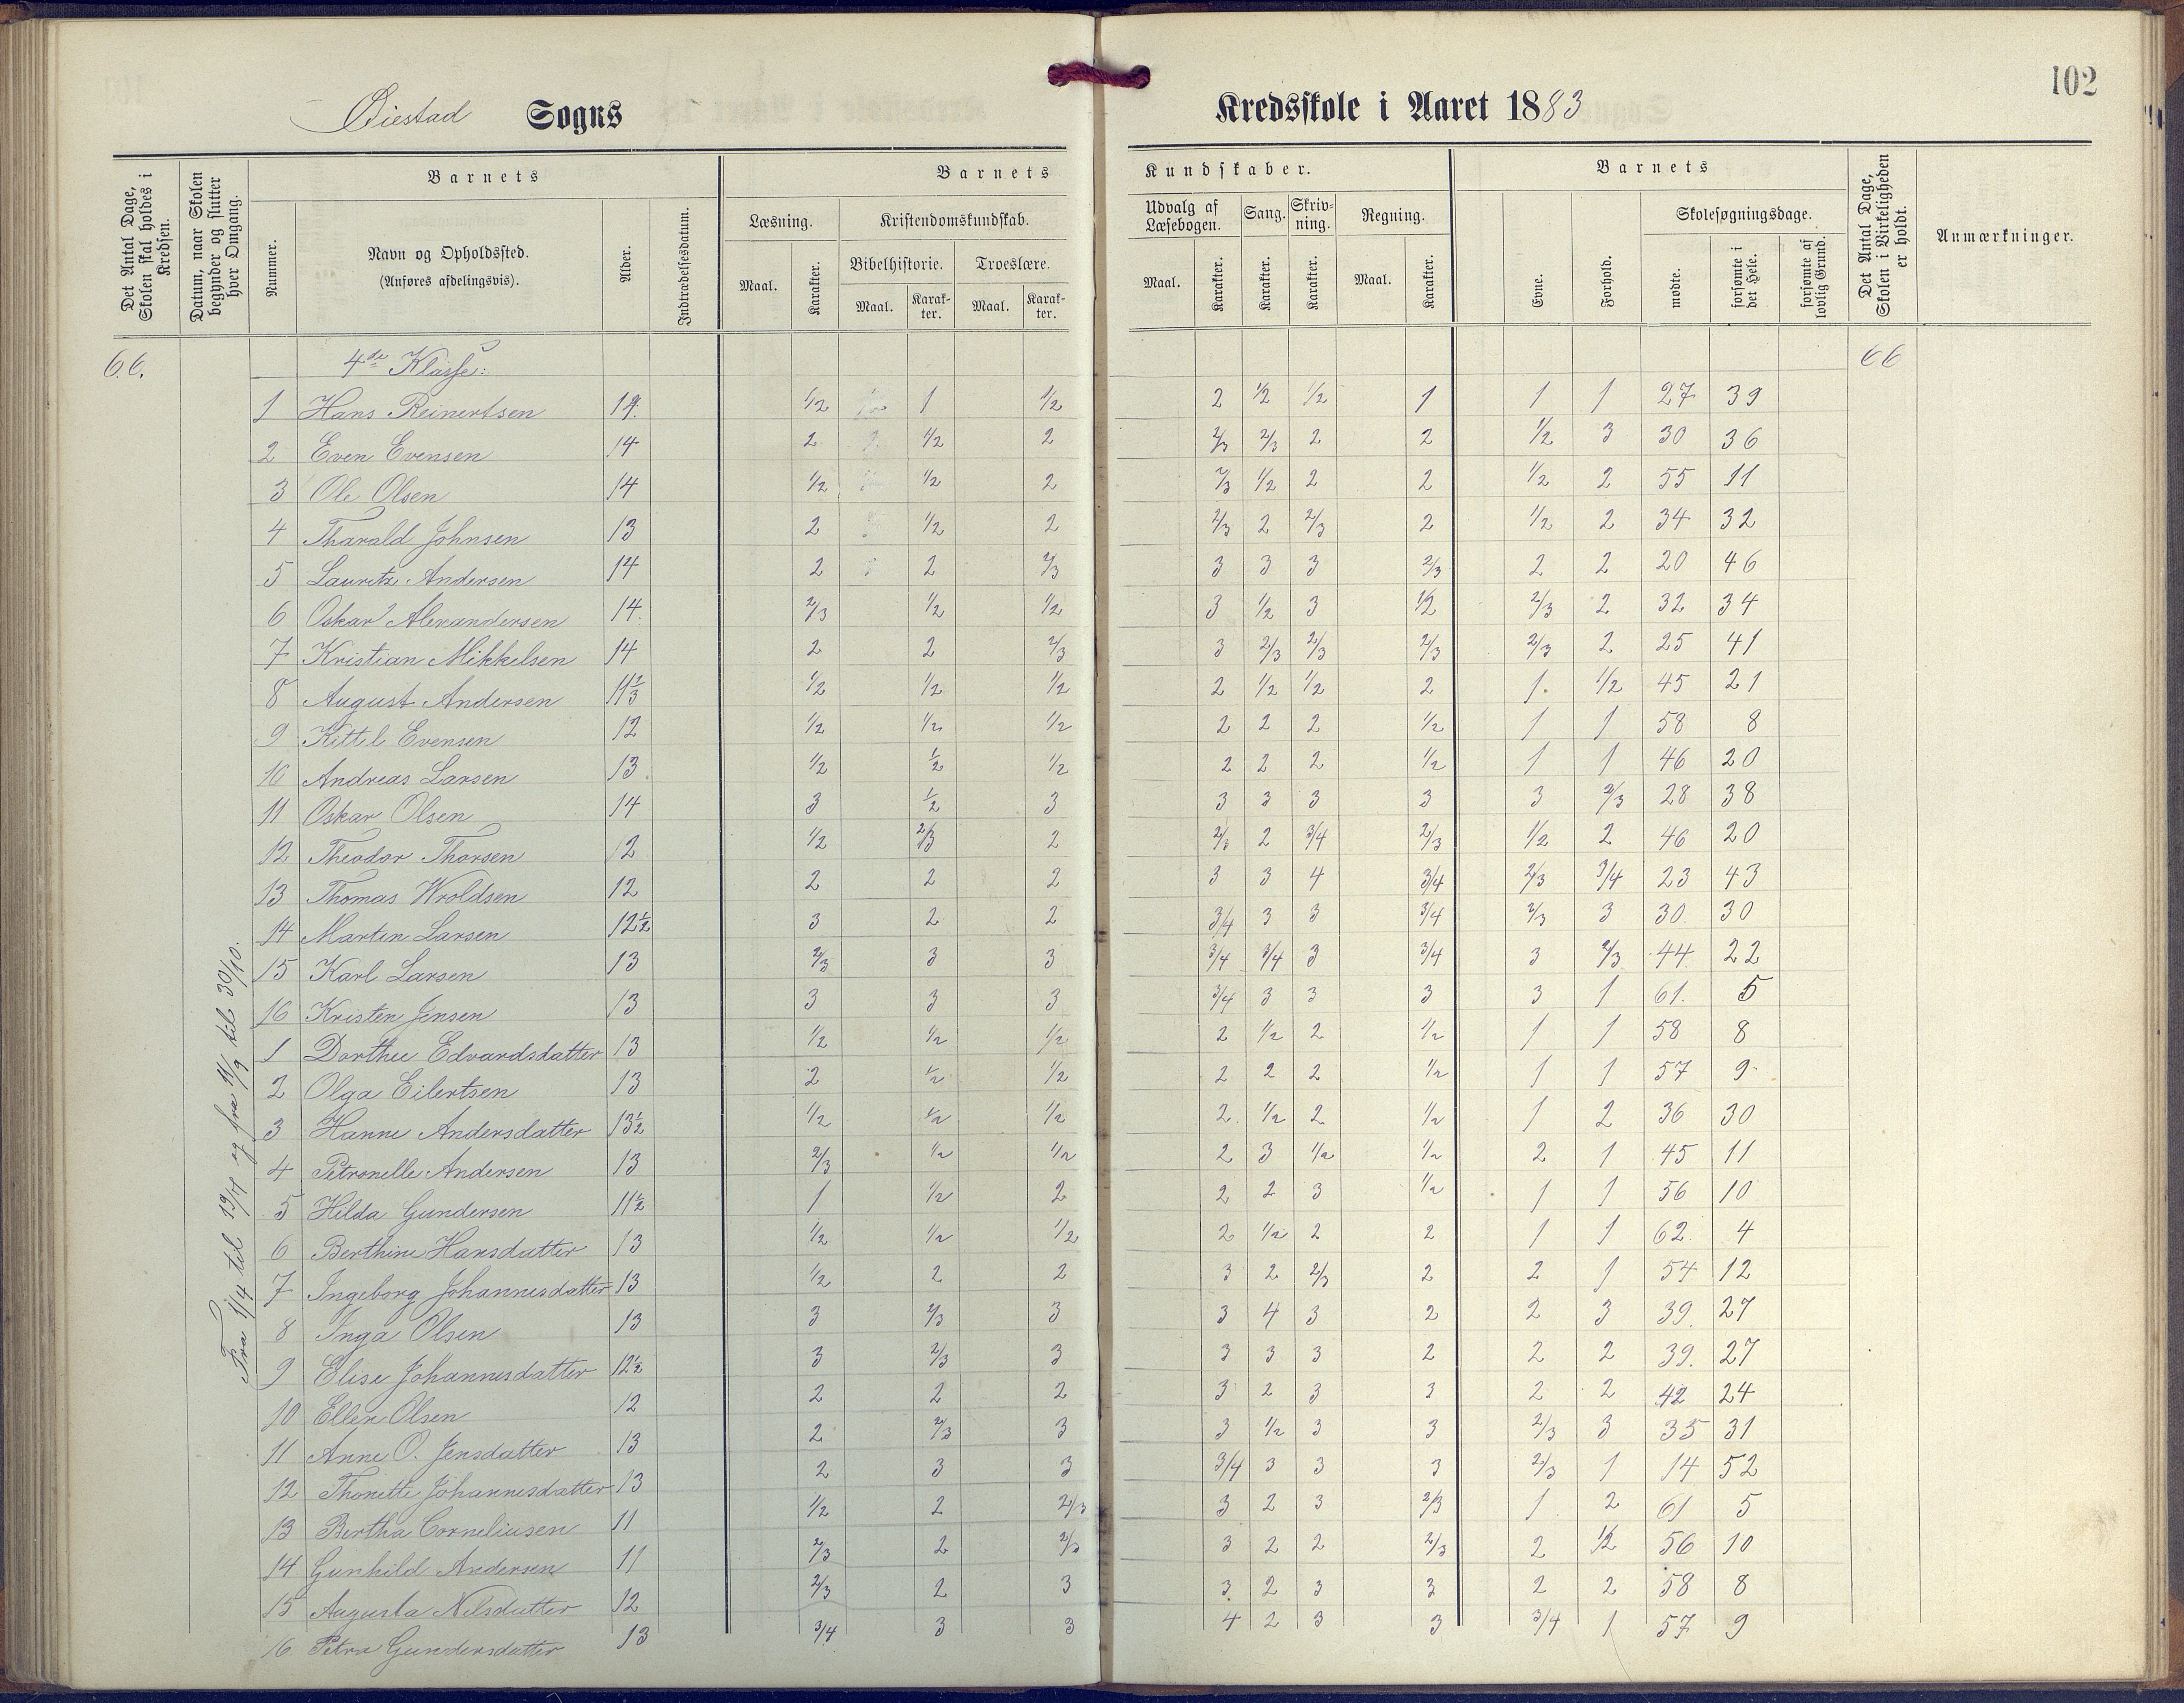 102
Øiestad Sogns Kredsskole i Aaret 1883
Det Antal Dage, Skolen skal holdes i Kredsen.
Datum, naar Skolen begynder og slutter hver Omgang.
Barnets
Nummer.
Navn og Opholdssted.
(Anføres afdelingsvis).
Alder.
Indtrædelsesdatum.
Barnets Kundskaber.
Læsning. Maal. Karakter.
Kristendomskundskab.
Bibelhistorie. Maal. Karakter.
Troeslære. Maal. Karakter.
Udvalg af Læsebogen. Maal. Karakter.
Sang. Karakter.
Skrivning. Karakter.
Regning. Maal. Karakter.
Barnets
Evne.
Forhold.
Skolesøgningsdage.
mødte.
forsømte i det Hele.
forsømte af lovlig Grund.
Det Antal Dage, Skolen i Virkeligheden er holdt.
Anmærkninger.
66. 4de Klasse: 66
Fra 1/4 til 19/4 og fra 11/9 til 30/10.
1 Hans Reinertsen 14. 1/2 1 1/2 2 1/2 1/2 1 1 1 27 39
2 Even Evensen 14 2 1/2 2 2/3 2/3 2 2 1/2 3 30 36
3 Ole Olsen 14 1/2 1/2 2 2/3 1/2 2 2 1/2 2 55 11
4 Tharald Johnsen 13 2 1/2 2 2/3 2 2/3 2 1/2 2 34 32
5 Lauritz Andersen 14 2 2 2/3 3 3 3 2/3 2 2 20 46
6 Oskar Alexandersen 14. 2/3 1/2 1/2 3 1/2 3 1/2 2/3 2 32 34
7 Kristian Mikkelsen 14 2 2 2/3 3 2/3 2/3 2/3 2/3 2 25 41
8 August Andersen 1/2 1/2 1/2 2 1/2 1/2 2 1. 1/2 45 21
9 Kittil Evensen 12 1/2 1/2 1/2 2 2 2 1/2 1 1 58 8
10 Andreas Larsen 13 1/2 1/2 1/2 2 2 2 1/2 1 1 46 20
11 Oskar Olsen 14 3 1/2 3 3 3 3 3 3 2/3 28 38
12 Theodor Thorsen 12 1/2 2/3 2 2/3 2 3/4 2/3 1/2 2 46 20
13 Thomas Wroldsen 12 2 2 2 3 3 4 3/4 2/3 3/4 23 43
14 Martin Larsen 12 1/2 3 2 2 3/4 3 3 3/4 2/3 3 30. 30
15 Karl Larsen 13 2/3 3 3 3/4 3/4 3 3/4 3 2/3 44 22
16 Kristen Jensen 13 3 3 3 3/4 3 3 3 3 1 61. 5
1 Dorthee Edvardsdatter 13 1/2 1/2 1/2 2 1/2 2 1/2 1 1 58 8
2 Olga Eilertsen 13 2 1/2 1/2 2 2 2 1/2 1 1 57 9
3 Hanne Andersdatter 13 1/2 1/2 1/2 1/2 2 1/2 2 1/2 1 2 36 30
4 Petronelle Andersen 13 2/3 1/2 1/2 2 3 1/2 1/2 2 1 45 11
5 Hilda Gundersen 11 1/2 1 1/2 2 2 2 3 1/2 1 1 56 10
6 Berthine Hansdatter 13 1/2 1/2 1/2 2 1/2 2 2 1 1 62 4
7 Ingeborg Johannesdatter 13 1/2 2 2 3 2 2/3 2 2 1 54 12
8 Inga Olsen 13 3 2/3 3 3 4 3 2 2 3 39. 27
9 Elise Johannesdatter 12 1/2 3 2/3 3 3 3 3 2 2 2 39. 27
10 Ellen Olsen 12 2 2 2 3 2 3 3 2 2 42 24
11 Anne O. Jensdatter 13 2 2/3 3 3 1/2 3 3 2/3 3 35 31
12 Thonette Johannesdatter 13 2 3 3 3/4 3 3 3 2/3 1 14 52
13 Bertha Corneliusen 11 1/2 2 2/3 3 2 3 2/3 1 2 61 5
14 Gunhild Andersen 11 2/3 2 2/3 3 2 2 2/3 2 1/2 56 10
15 Augusta Nilsdatter 12 2/3 2 3 3 2 3 3 2 2 58 8
16. Petra Gundersdatter 13 3/4 3 3 4 2 3 3 3/4 1 57 9